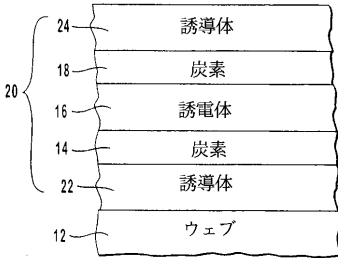 24 誘導体
18 炭素
20
16 誘電体
14 炭素
22 誘導体
12 ウェブ